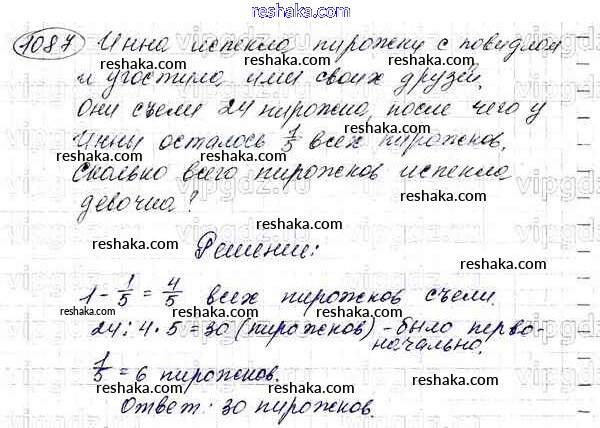 reshaka.com
1087 Инна испекла пирожки с повидлом
и угостила ими своих друзей.
reshaka.com reshaka.com
Они съели 24 пирожка, после чего у
Инны осталось 1/5 всех пирожков.
reshaka.com reshaka.com reshaka.com
Сколько всего пирожков испекла
vipgdz.ru
девочка?
reshaka.com reshaka.com
Решение:
reshaka.com
1 - 1/5 = 4/5 всех пирожков съели.
reshaka.com reshaka.com reshaka.com
24 : 4 · 5 = 30 (пирожков) - было перво-
начально.
reshaka.com reshaka.com
1/5 = 6 пирожков.
reshaka.com reshaka.com
Ответ: 30 пирожков.
reshaka.com